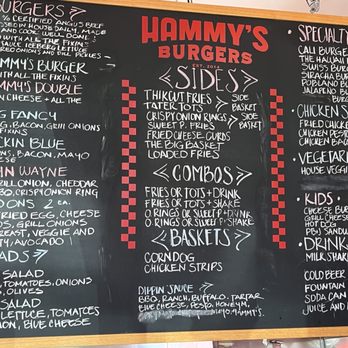 BURGERS
% CERTIFIED ANGUS BEEF
PRESSED IN HOUSE DAILY, MADE
AND COOK WELL DONE
WITH ALL THE FIXINS
SAUCE ICEBERG LETTUCE
RED ONIONS AND DILL PICKLES
MMY'S BURGER
WITH ALL THE FIXINS
MMY'S DOUBLE
N CHEESE + ALL THE
FIXINS
G FANCY
NG, BACON, GRILL ONIONS
FIXINS
CKIN BLUE
NS, BACON, MAYO
EESE
HN WAYNE
ILL ONION, CHEDDAR
BBQ, CRISPY ONION RING
OONS 2 EA.
FRIED EGG, CHEESE
DS, GRILL ONIONS
REAST, VEGGIE AND
TY, AVOCADO!
ADS
SALAD
TOMATOES, ONIONS
, OLIVES
SALAD
LETTUCE, TOMATOES
ON, BLUE CHEESE
HAMMY'S
BURGERS
EST. 2014
SIDES
THIKCUT FRIES
TATER TOTS
SIDE
BASKET
CRISPY ONION RINGS
SWEET P. FRIES
SIDE
BASKET
FRIED CHEESE CURDS
THE BIG BASKET
LOADED FRIES
COMBOS
FRIES OR TOTS + DRINK
FRIES OR TOTS + SHAKE
O. RINGS OR SWEET P + DRINK
O. RINGS OR SWEET P + SHAKE
BASKETS
CORNDOG
CHICKEN STRIPS
DIPPIN SAUCE
BBQ, RANCH, BUFFALO, TARTAR
BLUE CHEESE, PESTO, HONEY M,
HAMMY'S.
SPECIALTY
CALI BURGER
THE HALUWA
SWISS BURGE
SIRACHA BUR
POBLANO BU
JALAPENO BU
CHICKEN S
FRIED CHICKE
CHICKEN PESTO
CHICKEN BAC
VEGETAR
HOUSE VEGGI
KIDS
CHEESE BURG
GRILL CHEESE
HOT DOG
PB+J SANDWI
DRINK
MILK SHAKE
COLD BEER
FOUNTAIN
SODA CAN
JUICE AND